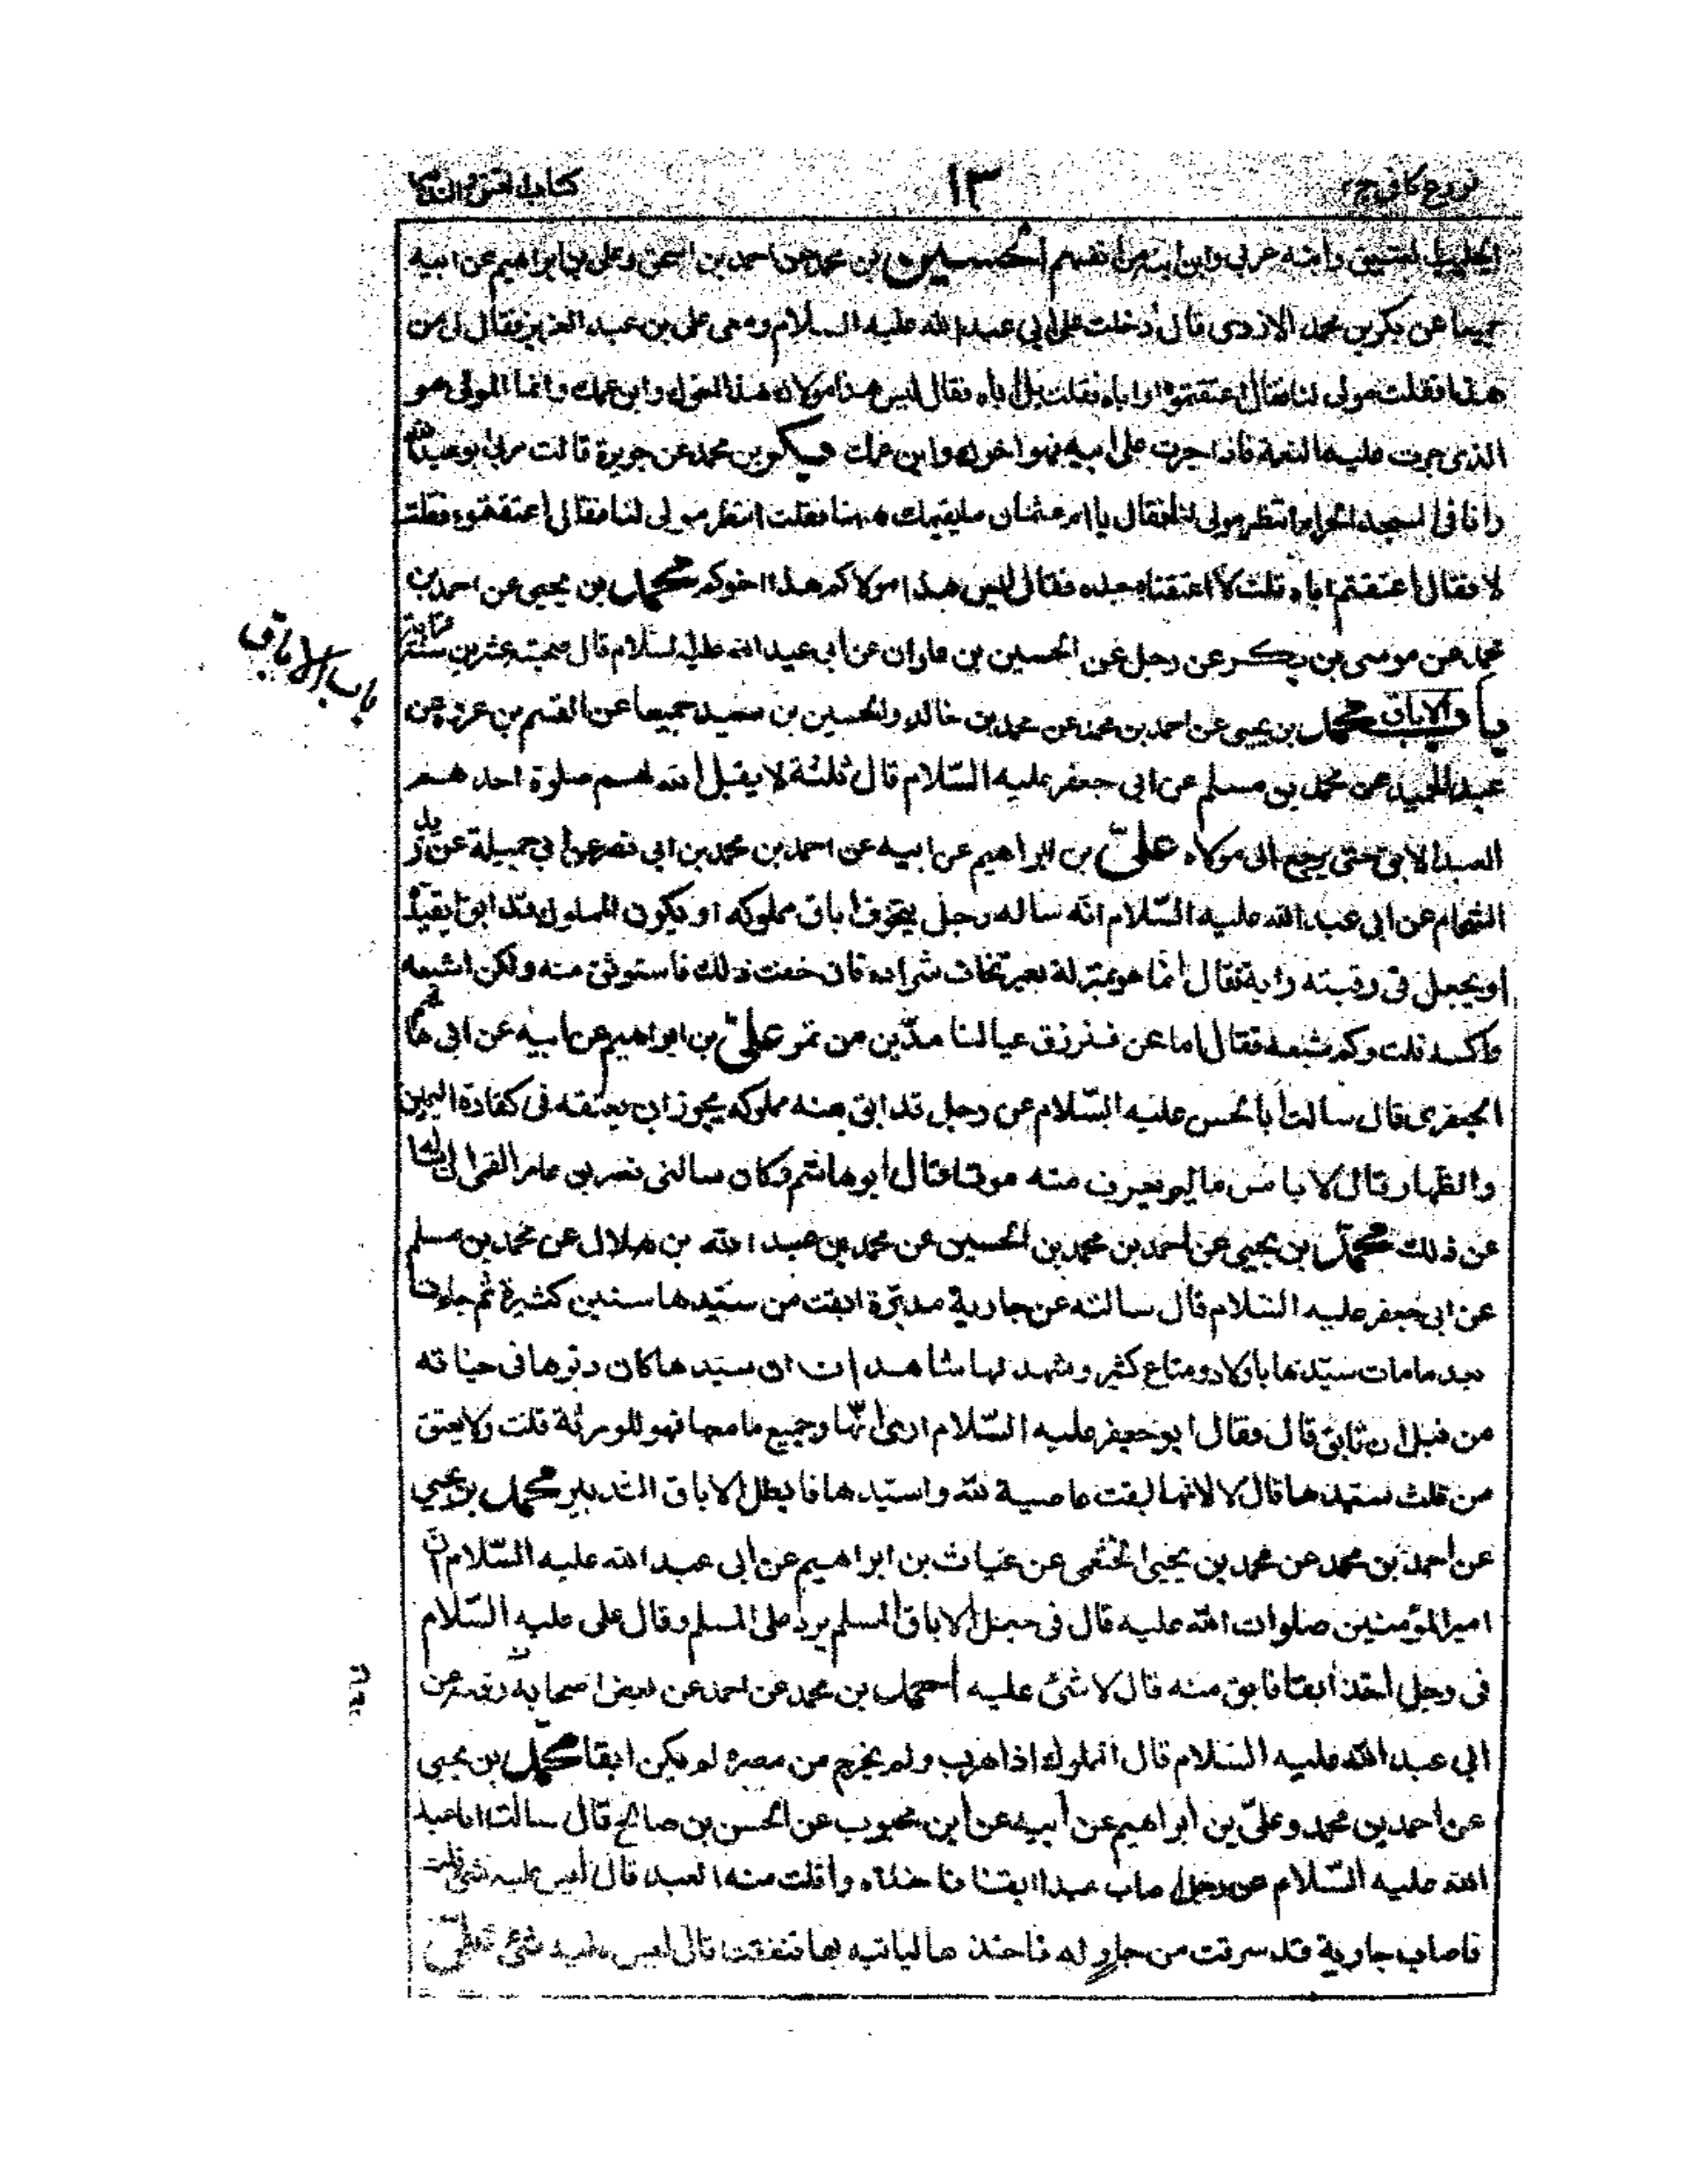 فروع كافي ج٢ ١٣ كتاب العتق
الحليف لعتيق وابنه عربي وابن ابنه من انفسهم الحسين بن محمد عن احمد بن اسحق وعلي بن ابراهيم عن ابيه
جميعا عن بكر بن محمد الازدي قال دخلت على ابي عبد الله عليه السلام ومعي علي بن عبد العزيز فقال لي من
هذا فقلت مولى لنا فقال اعتقتموه او اباه فقلت بل اباه فقال ليس هذا مولاك هذا اخوك وابن عمك وانما المولى هو
الذي جرت عليه النعمة فاذا جرت على ابيه فهو اخوك وابن عمك بكر بن محمد عن جويرة قالت مر بي ابو عبد الله
وانا في المسجد الحرام انتظر مولى لنا فقال يا ام عثمان ما يقيمك ههنا فقلت انتظر مولى لنا فقال اعتقتموه فقلت
لا فقال اعتقتم اباه قلت لا اعتقنا جده فقال ليس هذا مولاكم هذا اخوكم محمد بن يحيى عن احمد بن
محمد عن موسى بن بكر عن رجل عن الحسين بن علوان عن ابي عبد الله عليه السلام قال صحبة عشرين سنة قرابة
باب الاباق
باب الاباق محمد بن يحيى عن احمد بن محمد عن محمد بن خالد والحسين بن سعيد جميعا عن القسم بن عروة عن
عبد الحميد عن محمد بن مسلم عن ابي جعفر عليه السّلام قال ثلثة لا يقبل الله لهم صلوة احدهم
العبد الآبق حتى يرجع الى مولاه علىّ بن ابراهيم عن ابيه عن احمد بن محمد بن ابي نصر عن ابي جميلة عن زيد
الشحام عن ابي عبد الله عليه السّلام انه ساله رجل يتخوف اباق مملوكه او يكون المملوك قد ابق ايقيده
او يجعل في رقبته راية فقال انما هو بمنزلة بعير تخاف شراده فان خفت ذلك فاستوثق منه ولكن اشبعه
واكسه قلت وكم شبعه فقال اما نحن فنرزق عيالنا مدّين من تمر علىّ بن ابراهيم عن ابيه عن ابي هاشم
الجعفري قال سالت ابا الحسن عليه السّلام عن رجل قد ابق منه مملوكه يجوز ان يعتقه في كفارة اليمين
والظهار قال لا باس ما لم يعرف منه موتا قال ابو هاشم وكان سالني نصر بن عامر القمي ان اساله
عن ذلك محمد بن يحيى عن احمد بن محمد بن الحسين عن محمد بن عبد الله بن هلال عن محمد بن مسلم
عن ابي جعفر عليه السّلام قال سالته عن جارية مدبّرة ابقت من سيّدها سنين كثيرة ثم جاءت
بعد ما مات سيّدها باولاد ومتاع كثير وشهد لها شاهدان ان سيّدها كان دبّرها في حياته
من قبل ان تابق قال فقال ابو جعفر عليه السّلام ارى انّها وجميع ما معها فهو للورثة قلت ولا يعتق
من ثلث سيّدها قال لا لانها ابقت عاصية لله ولسيّدها فابطل الاباق التدبير محمد بن يحيى
عن احمد بن محمد عن محمد بن يحيى الخثعمي عن غياث بن ابراهيم عن ابي عبد الله عليه السّلام ان
امير المؤمنين صلوات الله عليه قال في جعل الاباق المسلم يرد على المسلم وقال علي عليه السّلام
في رجل اخذ ابقا فابق منه قال لا شئ عليه احمد بن محمد عن احمد عن بعض اصحابه رفعه عن
ابي عبد الله عليه السّلام قال المملوك اذا هرب ولم يخرج من مصره لم يكن ابقا محمد بن يحيى
عن احمد بن محمد وعلىّ بن ابراهيم عن ابيه عن ابن محبوب عن الحسن بن صالح قال سالت ابا عبد
الله عليه السّلام عن رجل صاب عبدا ابقا فاخذه وافلت منه العبد قال ليس عليه شئ قلت
فاصاب جارية قد سرقت من جار له فاخذها لياتيه بها فنفقت قال ليس عليه شئ علىّ